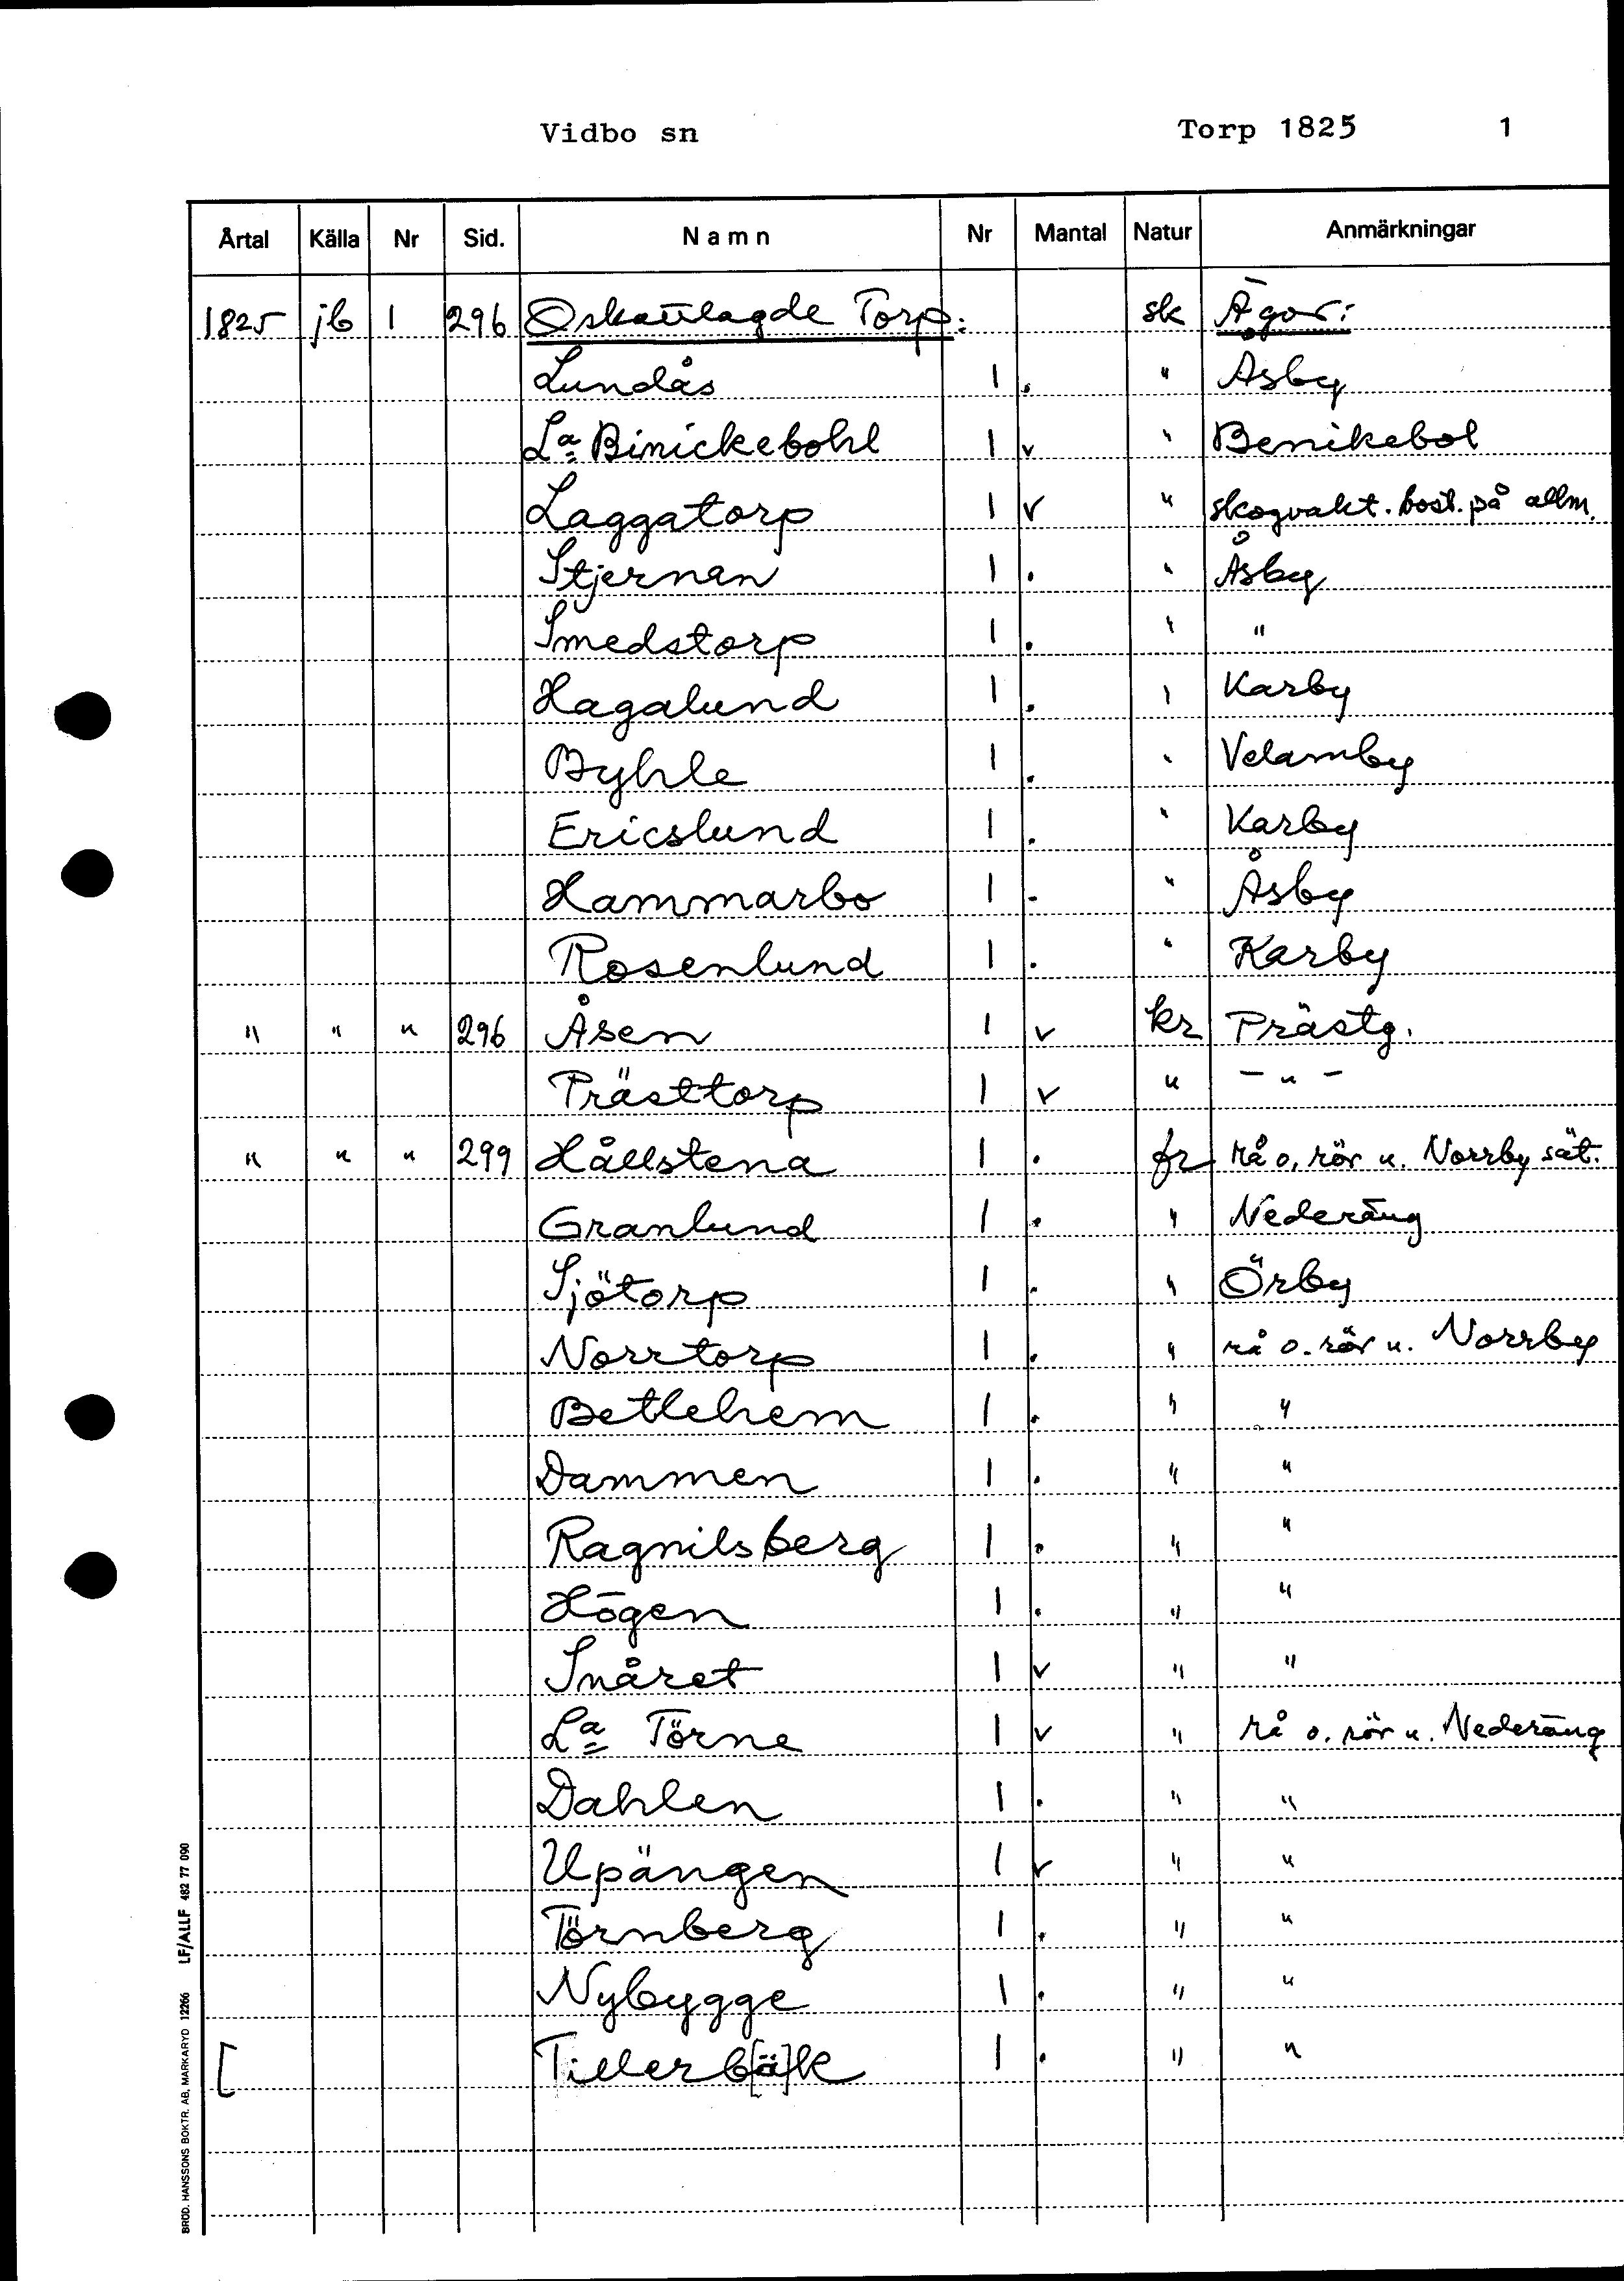 Vidbo sn Torp 1825 1
Årtal Källa Nr Sid. Namn Nr Mantal Natur Anmärkningar
1825 jb 1 296 Oskattlagde Torp: sk Ägor:
Lundås 1 . " Åsby
La Binickebohl 1 v " Benikebol
Laggatorp 1 v " skogvakt. bost. på allm.
Stjernan 1 . " Åsby
Smedstorp 1 . " "
Hagalund 1 . " Karby
Byhle 1 . " Velamby
Ericslund 1 . " Karby
Hammarbo 1 - " Åsby
Rosenlund 1 . " Karby
" " " 296 Åsen 1 v kr Prästg.
Prästtorp 1 v " - " -
" " " 299 Hållstena 1 . fr rå o. rör u. Norrby sät.
Granlund 1 . " Nederäng
Sjötorp 1 . " Örby
Norrtorp 1 . " rå o. rör u. Norrby
Betlehem 1 . " "
Dammen 1 . " "
Ragnilsberg 1 . " "
Högen 1 . " "
Snåret 1 v " "
La Törne 1 v " rå o. rör u. Nederäng
Dahlen 1 . " "
Upängen 1 v " "
Törnberg 1 . " "
Nybygge 1 . " "
[ Tillerb[ä]k 1 . " "
BRÖD. HANSSONS BOKTR. AB, MARKARYD 12266 LF/ALLF 482 77 090